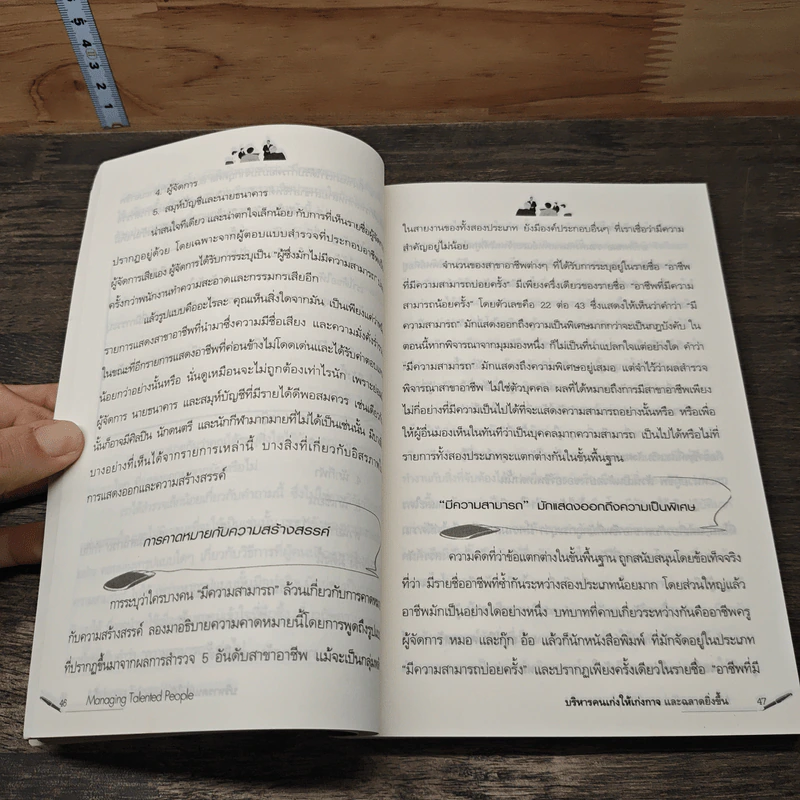 5
4
3
2
1
4. ผู้จัดการ
5. สมุห์บัญชีและนายธนาคาร
น่าสนใจทีเดียว และน่าตกใจเล็กน้อย กับการที่เห็นรายชื่อผู้จัดการ
ปรากฏอยู่ด้วย โดยเฉพาะจากผู้ตอบแบบสำรวจที่ประกอบอาชีพเป็น
ผู้จัดการเสียเอง ผู้จัดการได้รับการระบุเป็น "ผู้ซึ่งมักไม่มีความสามารถ"
ครั้งกว่าพนักงานทำความสะอาดและกรรมกรเสียอีก
แล้วรูปแบบคืออะไรละ คุณเห็นสิ่งใดจากมัน เป็นเพียงแค่
รายการแสดงสาขาอาชีพที่นำมาซึ่งความมีชื่อเสียง และความมั่งคั่ง
ในขณะที่อีกรายการแสดงอาชีพที่ค่อนข้างไม่โดดเด่นและได้รับค่าตอบแทน
น้อยกว่าอย่างนั้นหรือ นั่นดูเหมือนจะไม่ถูกต้องเท่าไรนัก เพราะ
ผู้จัดการ นายธนาคาร และสมุห์บัญชีที่มีรายได้ดีพอสมควร เช่นเดียว
นั้นก็อาจมีศิลปิน นักดนตรี และนักกีฬามากมายที่ไม่ได้เป็นเช่นนั้น
บางอย่างที่เห็นได้จากรายการเหล่านี้ บางสิ่งที่เกี่ยวกับอิสรภาพ
การแสดงออกและความสร้างสรรค์
การคาดหมายกับความสร้างสรรค์
การระบุว่าใครบางคน "มีความสามารถ" ล้วนเกี่ยวกับการคาดหมาย
กับความสร้างสรรค์ ลองมาอธิบายความคาดหมายนี้โดยการพูดถึงรูปแบบ
ที่ปรากฏขึ้นมาจากผลการสำรวจ 5 อันดับสาขาอาชีพ แม้จะเป็นกลุ่ม
46 Managing Talented People
ในสายงานของทั้งสองประเภท ยังมีองค์ประกอบอื่นๆ ที่เราเชื่อว่ามีความ
สำคัญอยู่ไม่น้อย
จำนวนของสาขาอาชีพต่างๆ ที่ได้รับการระบุอยู่ในรายชื่อ "อาชีพ
ที่มีความสามารถบ่อยครั้ง" มีเพียงครึ่งเดียวของรายชื่อ "อาชีพที่มีความ
สามารถน้อยครั้ง" โดยตัวเลขคือ 22 ต่อ 43 ซึ่งแสดงให้เห็นว่าคำว่า "มี
ความสามารถ" มักแสดงออกถึงความเป็นพิเศษมากกว่าจะเป็นกฎบังคับ ใน
ตอนนี้หากพิจารณาจากมุมมองหนึ่ง ก็ไม่เป็นที่น่าแปลกใจแต่อย่างใด คำว่า
"มีความสามารถ" มักแสดงถึงความพิเศษอยู่เสมอ แต่จำไว้ว่าผลสำรวจ
พิจารณาสาขาอาชีพ ไม่ใช่ตัวบุคคล ผลที่ได้หมายถึงการมีสาขาอาชีพเพียง
ไม่กี่อย่างที่มีความเป็นไปได้ที่จะแสดงความสามารถอย่างนั้นหรือ หรือเพื่อ
ให้ผู้อื่นมองเห็นในทันทีว่าเป็นบุคคลมากความสามารถ เป็นไปได้หรือไม่ที่
รายการทั้งสองประเภทจะแตกต่างกันในขั้นพื้นฐาน
"มีความสามารถ" มักแสดงออกถึงความเป็นพิเศษ
ความคิดที่ว่าข้อแตกต่างในขั้นพื้นฐาน ถูกสนับสนุนโดยข้อเท็จจริง
ที่ว่า มีรายชื่ออาชีพที่ซ้ำกันระหว่างสองประเภทน้อยมาก โดยส่วนใหญ่แล้ว
อาชีพมักเป็นอย่างใดอย่างหนึ่ง บทบาทที่คาบเกี่ยวระหว่างกันคืออาชีพครู
ผู้จัดการ หมอ และกุ๊ก อ้อ แล้วก็นักหนังสือพิมพ์ ที่มักจัดอยู่ในประเภท
"มีความสามารถบ่อยครั้ง" และปรากฏเพียงครั้งเดียวในรายชื่อ "อาชีพที่มี
บริหารคนเก่งให้เก่งกาจ และฉลาดยิ่งขึ้น 47